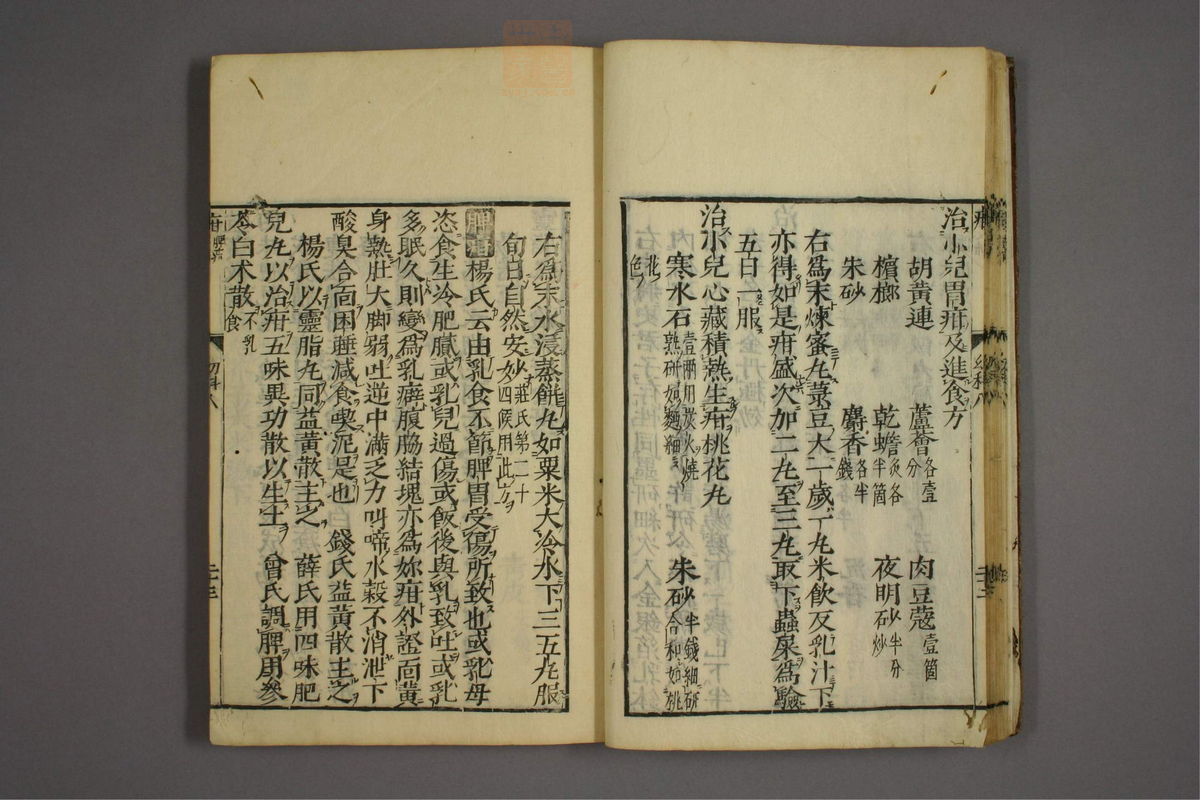 治小兒胃疳及進食方
胡黃連 蘆薈各壹分 肉豆蔲壹箇
檳榔 乾蟾炙各半箇 夜明砂炒半分
朱砂 麝香各半錢
右爲末煉蜜丸菉豆大一歲一丸米飲及乳汁下
亦得如是疳盛次加二丸至三丸取下蟲屎爲驗
五日一服
治小兒心藏積熱生疳桃花丸
寒水石壹兩用炭火燒熟研如麵細 朱砂半錢細研合和如桃花色
右爲末水浸蒸餅丸如粟米大冷水下三五丸服
旬日自然安妙莊氏第二十四候用此方
脾疳楊氏云由乳食不節脾胃受傷所致也或乳母
恣食生冷肥膩或乳兒過傷或飯後與乳致吐或乳
多眠久則變爲乳癖腹脇結塊亦爲妳疳外證面黃
身熱肚大脚弱吐逆中滿乏力叫啼水穀不消泄下
酸臭合面困睡減食喫泥是也 錢氏益黃散主之
楊氏以靈脂丸同益黃散主之 薛氏用四味肥
兒丸以治疳五味異功散以生土 曾氏調脾用參
苓白术散不乳食
疳
幼科八
二十三